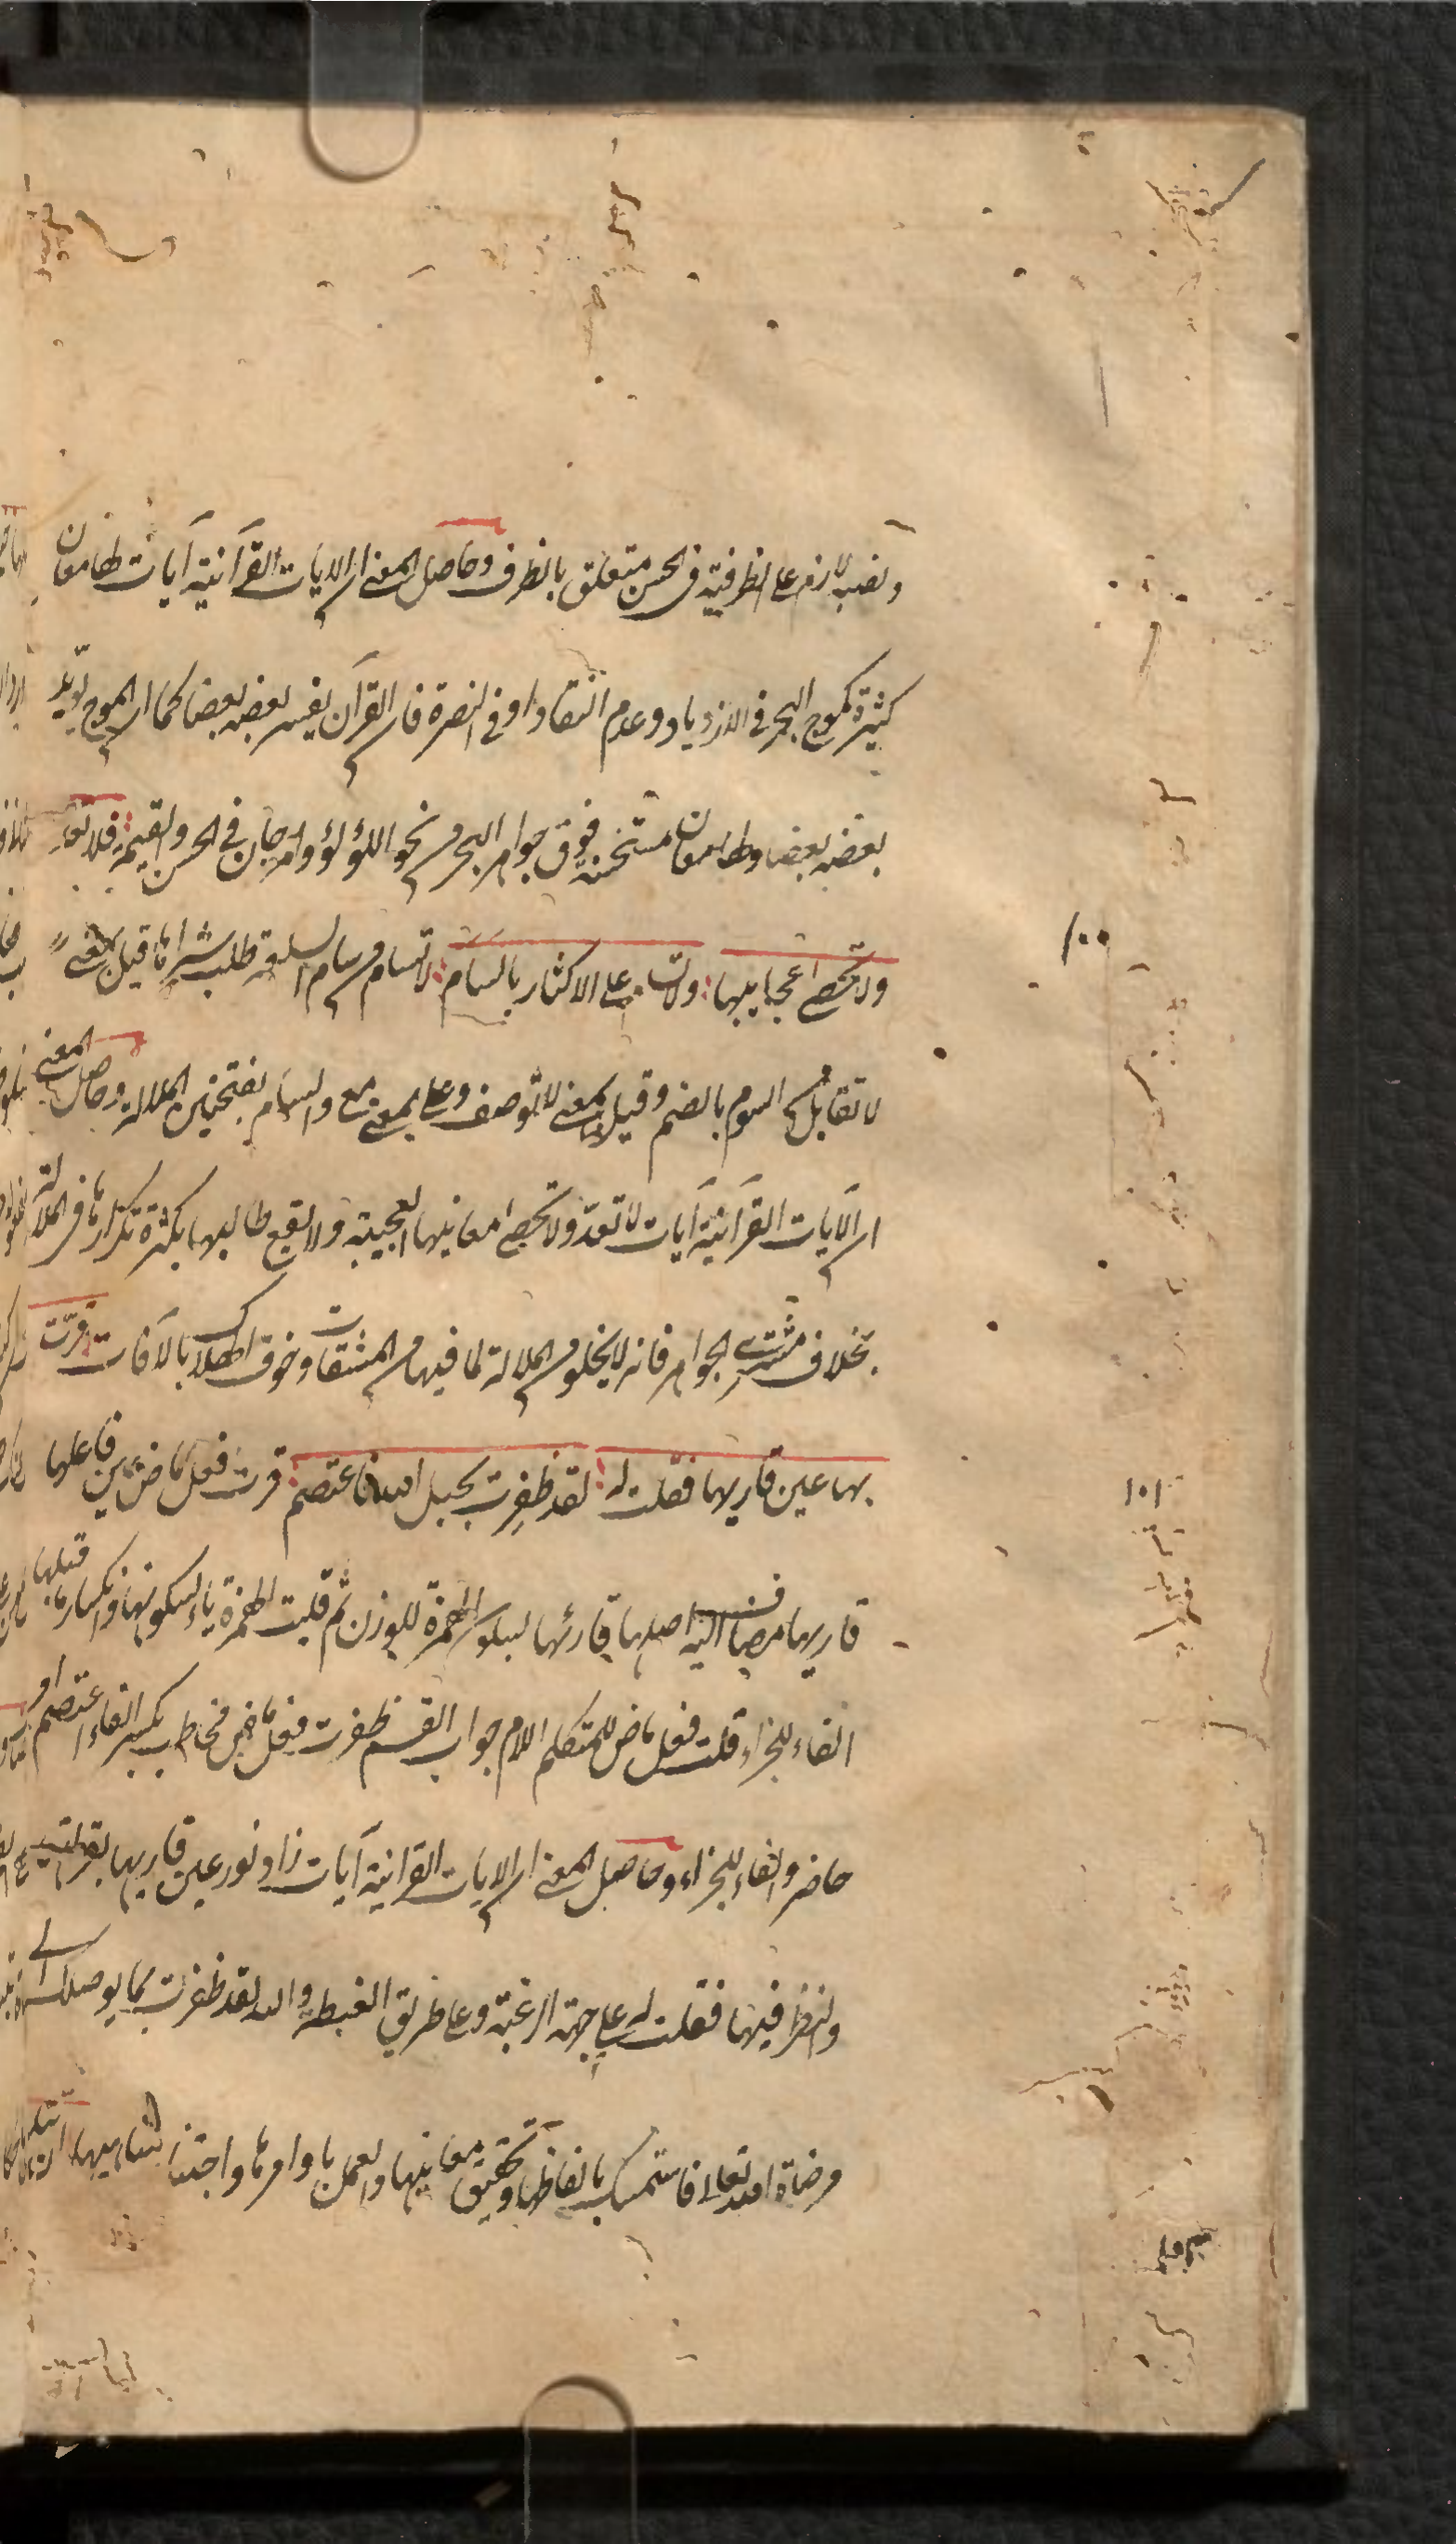 ونصبه لازم على الظرفية في الحسن متعلق بالظرف وحاصل المعنى ان الايات القرآنية آيات لها معان
كثيرة كموج البحر في الازدياد وعدم النفاد او في النصرة فان القرآن يفسر بعضه بعضا كما ان الموج يؤيد
بعضه بعضا ولها معان مستحسنة فوق جواهر البحر من نحو اللؤلؤ والمرجان في الحسن والقيمة فلا تعد
١٠٠
ولا تحصى عجايبها ولا تسام على الاكثار بالسام لا تسام من سام السلعة طلب شراءها قيل المعنى
لا تقابل من السوم بالضم وقيل بمعنى لا توصف وعلى بمعنى مع والسام بفتحتين الملالة وحاصل المعنى
ان الآيات القرآنية آيات لا تعد ولا تحصى معانيها العجيبة ولا يقع طالبها بكثرة تكرارها في الملالة
بخلاف مشتري الجواهر فانه لا يخلو من الملالة لما فيها من المشقات وخوف الهلاك بالآفات قرت
١٠١
بها عين قاريها فقلت له لقد ظفرت بحبل الله فاعتصم قرت فعل ماض عين فاعلها
قاريها مضاف اليه اصلها قارئها سكون الهمزة للوزن ثم قلبت الهمزة ياء لسكونها وانكسار ما قبلها
الفاء للجزاء قلت فعل ماض للمتكلم اللام جواب القسم ظفرت فعل ماض مخاطب بكسر الفاء اعتصم امر
حاضر والفاء للجزاء وحاصل المعنى ان الايات القرانية آيات زاد نور عين قاريها
والنظر فيها فقلت له على جهة الرغبة وعلى طريق الغبطة والله لقد ظفرت بما يوصلك الى
مرضاة الله تعالى فاستمسك بالفاظها وتحقيق معانيها والعمل باوامرها واجتناب مناهيها